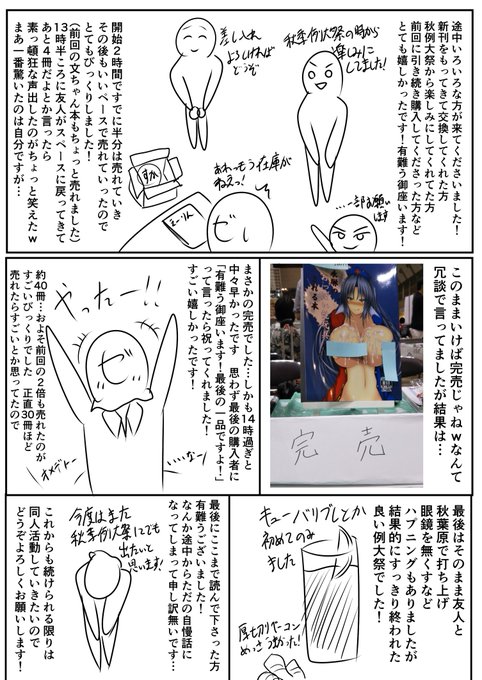 途中いろいろな方が来てくださいました！
新刊をもってきて交換してくれた方
秋例大祭から楽しみにしてくれてた方
前回に引き続き購入してくださった方など
とても嬉しかったです！有難う御座います！
秋季例大祭の時から
楽しみに
してました！
差し入れ
よろしければ
どうぞ
…一部お願い
します
あれっもう在庫が
ねぇっ！
ぜ
開始２時間ですでに半分は売れていき
その後もいいペースで売れていったので
とてもびっくりしました！
（前回の文ちゃん本もちょっと売れました）
13時半ころに友人がスペースに戻ってきて
あと４冊だよとか言ったら
素っ頓狂な声出したのがちょっと笑えたｗ
まあ一番驚いたのは自分ですが…
このままいけば完売じゃねｗなんて
冗談で言ってましたが結果は…
完売
まさかの完売でした…しかも14時過ぎと
中々早かったです　思わず最後の購入者に
「有難う御座います！最後の一品ですよ！」
って言ったら祝ってくれました！
すごい嬉しかったです！
やったー!!
ぜ
…いいなー
オメデトー
約40冊…およそ前回の２倍も売れたのが
すごいびっくりでした　正直30冊ほど
売れたらすごいとか思ってたので
最後はそのまま友人と
秋葉原で打ち上げ
眼鏡を無くすなど
ハプニングもありましたが
結果的にすっきり終われた
良い例大祭でした！
キューバリブレとか
初めてのみ
ました
厚切りベーコン
めっさうまかった！
最後にここまで読んで下さった方
有難うございました！
なんか途中からただの自慢話に
なってしまって申し訳無いです…
今度はまた
秋季例大祭にでも
出たいと
思います！
これからも続けられる限りは
同人活動していきたいので
どうぞよろしくお願いします！